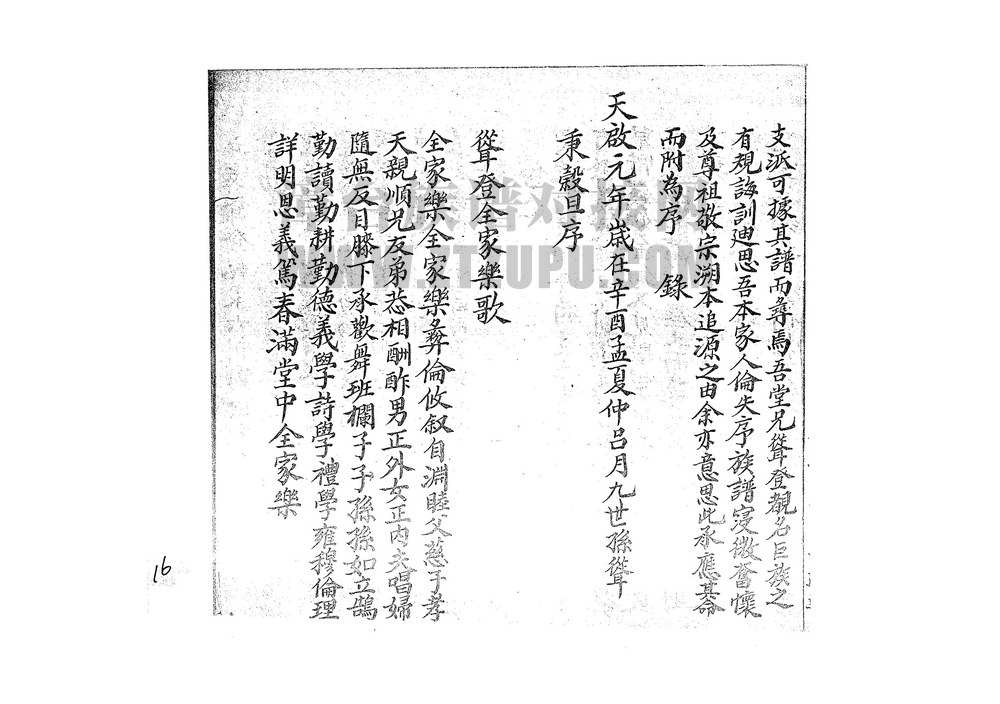 支派可據其譜而尋焉吾堂兄聳登觀名巨族之
有規誨訓廸思吾本家人倫失序族譜寖微奮懷
及尊祖敬宗溯本追源之由余亦意思此承應其命
而附為序 錄
天啟元年歲在辛酉孟夏仲吕月九世孫聳
秉穀旦序
聳登全家樂歌
全家樂全家樂彝倫攸叙自淵睦父慈子孝
天親順兄友弟恭相酬酢男正外女正內夫唱婦
隨無反目膝下承歡舞班斕子子孫孫如立鵠
勤讀勤耕勤德義學詩學禮學雍穆倫理
詳明恩義篤春滿堂中全家樂
16
WWW.ZTJUPU.COM